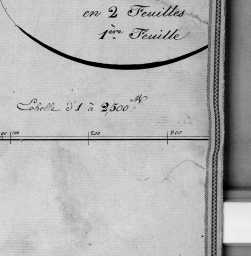 en 2 Feuilles
1ère Feuille
Echelle d'1 à 2,500 M
100
200